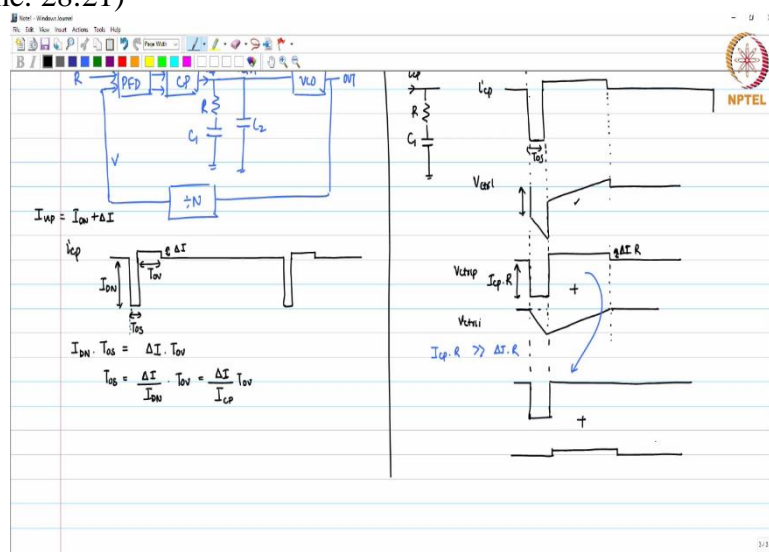 ne: 28:21)
Note1 - Windows Journal
File Edit View Insert Actions Tools Help
Page Width
B I
NPTEL
R PFD CP VCO OUT
R
C1 C2
V
÷N
Iup = IDN + ΔI
icp
ΔI
IDN Tov
Tos
IDN . Tos = ΔI . Tov
Tos = ΔI/IDN . Tov = ΔI/ICP Tov
R
C1
icp
Tos
Vctrl
Vctrlp Icp.R ΔI.R
+
Vctrli
Icp.R >> ΔI.R
+